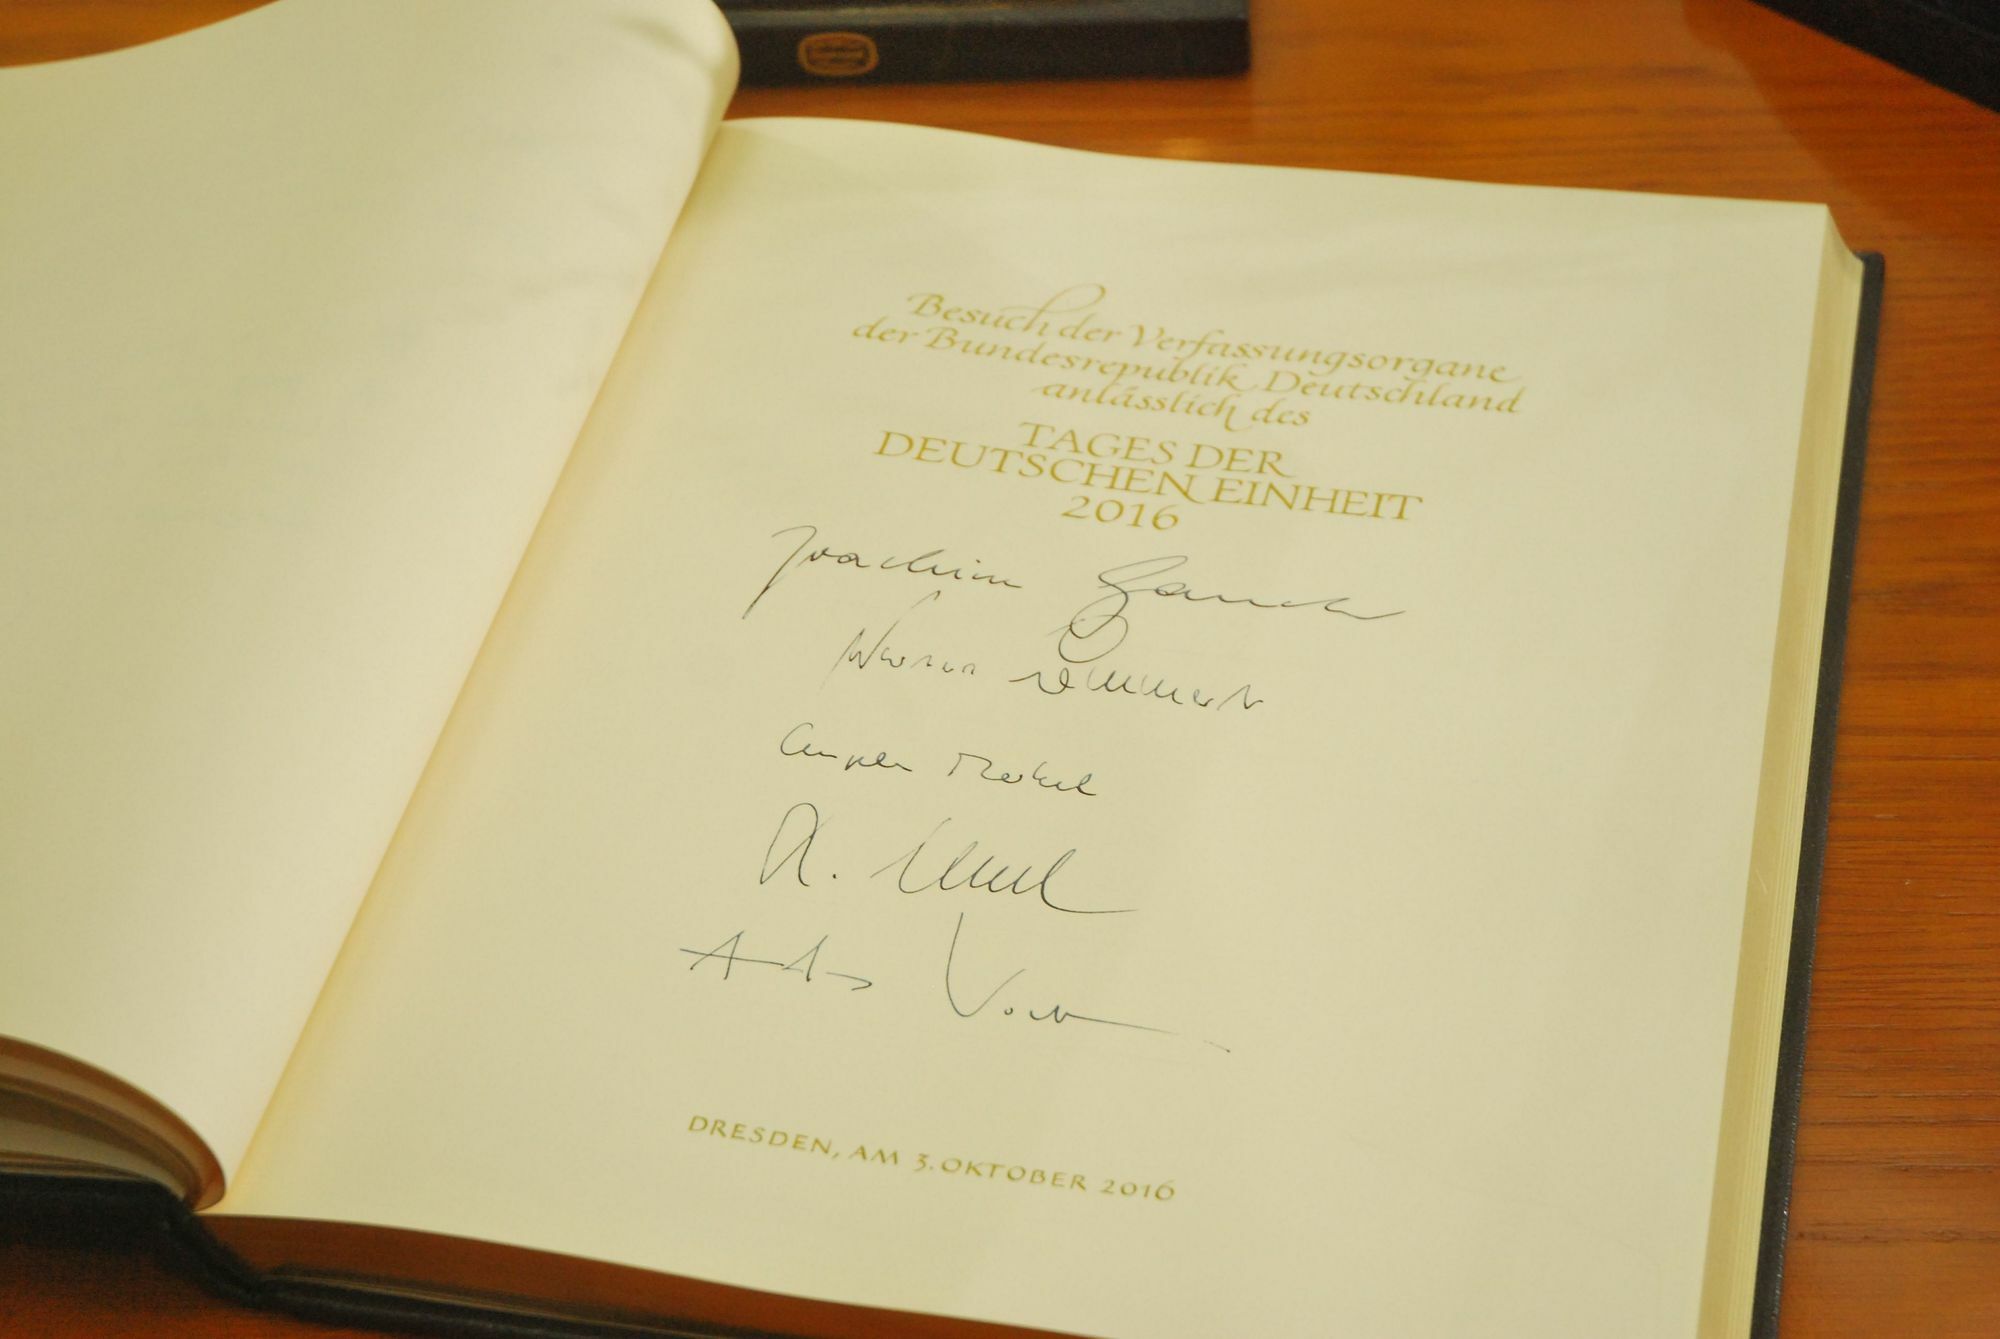 Besuch der Verfassungsorgane
der Bundesrepublik Deutschland
anlässlich des
TAGES DER
DEUTSCHEN EINHEIT
2016
Joachim Gauck
Norbert Lammert
Angela Merkel
Andreas Voßkuhle
DRESDEN, AM 3. OKTOBER 2016